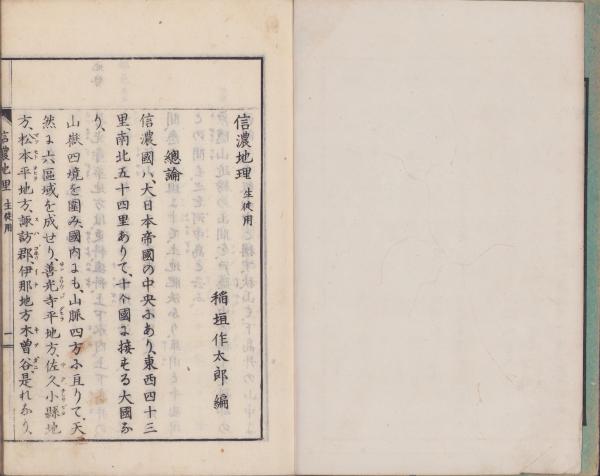 信濃地理 生徒用
稲垣作太郎編
總論
信濃國ハ大日本帝國の中央ふあり、東西四十三
里、南北五十四里ありて、十个國に接する大國な
り、
山嶽四境を圍み、國内にも、山脈四方ふ亘りて、天
然に六區域を成せり、善光寺平地方、佐久小縣地
方、松本平地方、諏訪郡、伊那地方、木曽谷、是れなり、
信濃地理 生徒用 一